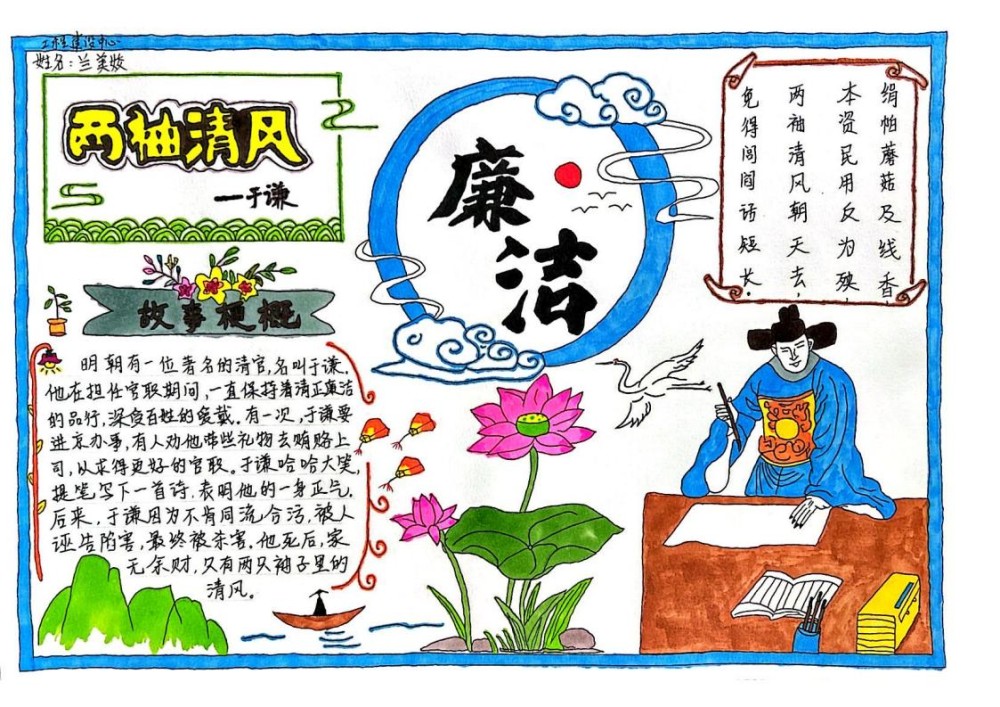 工程建设中心
姓名：兰美姣
两袖清风
—于谦
廉洁
绢帕蘑菇及线香
本资民用反为殃，
两袖清风朝天去，
免得闾阎话短长。
故事梗概
明朝有一位著名的清官，名叫于谦。
他在担任官职期间，一直保持着清正廉洁
的品行，深受百姓的爱戴。有一次，于谦要
进京办事，有人劝他带些礼物去贿赂上
司，以求得更好的官职。于谦哈哈大笑，
提笔写下一首诗，表明他的一身正气。
后来，于谦因为不肯同流合污，被人
诬告陷害，最终被杀害。他死后，家
无余财，只有两只袖子里的
清风。